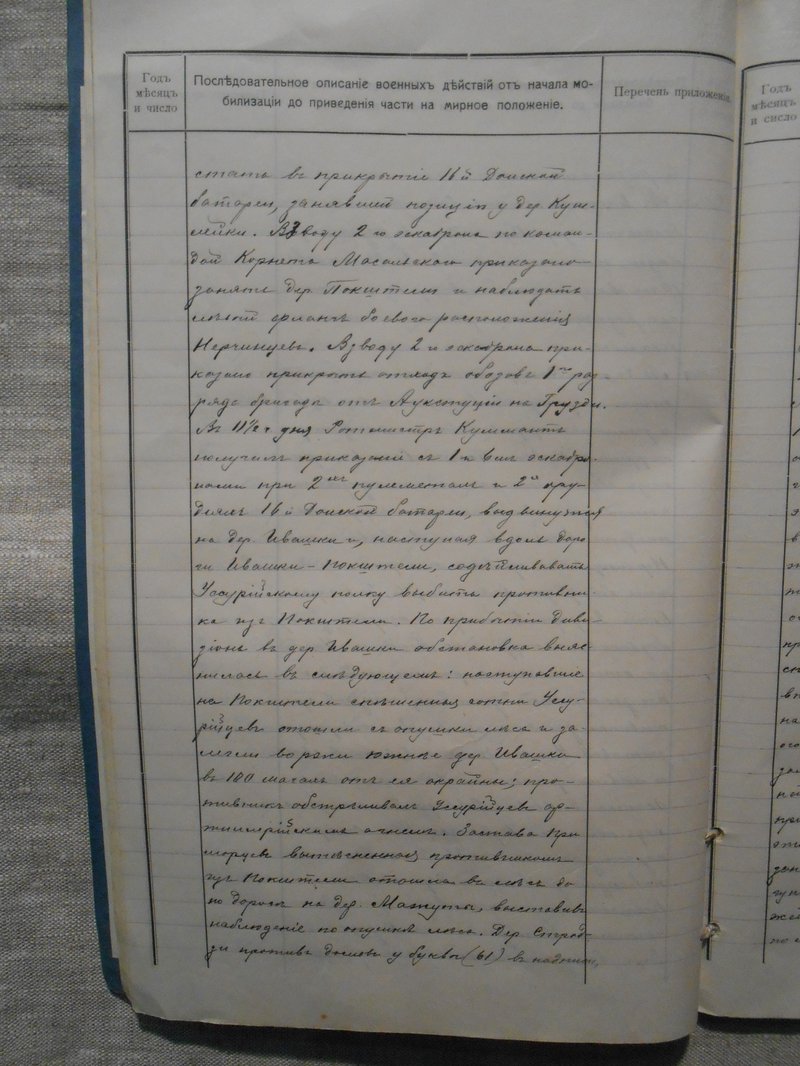 Годъ
мѣсяцъ
и число
Послѣдовательное описаніе военныхъ дѣйствій отъ начала мо-
билизаціи до приведенія части на мирное положеніе.
Перечень приложені
Годъ
мѣсяцъ
и число
стать въ прикрытіе 16й Донской
батареи, занявшей позицію у дер Куш-
лейки. Взводу 2 го эскадрона по коман-
дой Корнета Масальскаго приказано
занять дер Покштели и наблюдать
лѣвый флангъ боевого расположенія
Нерчинцевъ. Взводу 2 го эскадрона при-
казано прикрыть отходъ обозовъ 1го раз-
ряда бригады отъ на Грузди.
Въ 11½ ч дня Ротмистръ Куммантъ
получилъ приказаніе съ 1 и 6 мъ эскадро-
нами при 2хъ пулеметахъ и 2хъ ору-
діяхъ 16 й Донской батареи, выдвинуться
на дер. Ивашки и, наступая вдоль доро
ги Ивашки - Покштели, содѣйствовать
Уссурійскому полку выбить противни-
ка изъ Покштели. По прибытіи диви-
зіона въ дер Ивашки обстановка выяс-
нилась въ слѣдующемъ: наступавшіе
на Покштели спѣшенныя сотни Уссу-
рійцевъ отошли съ опушки лѣса и за-
легли во ржи южнѣе дер. Ивашки
въ 100 шагахъ отъ ея окраины; про-
тивникъ обстрѣливалъ Уссурійцевъ ар-
тиллерійскимъ огнемъ. Застава При
морцевъ вытѣсненная противникомъ
изъ Покштели отошла въ лѣсъ
по дорогѣ на дер. Мажуты, выставивъ
наблюденіе по опушкѣ лѣса. Дер.
противъ у буквы (61) въ надписи,